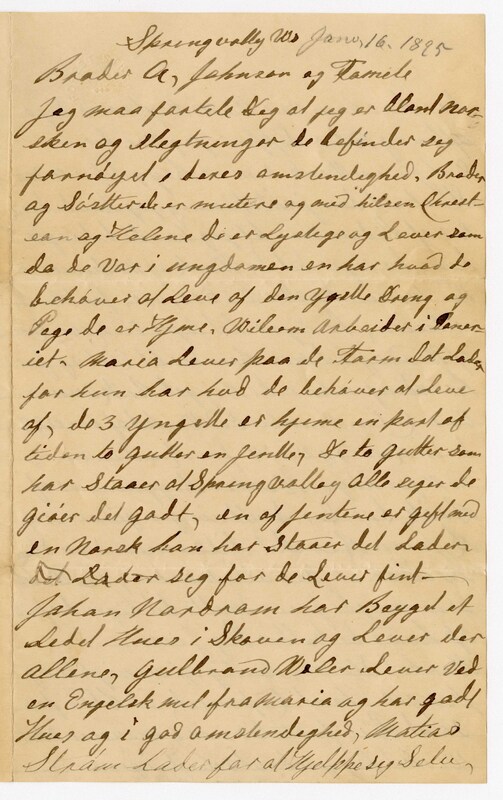 Springvally Ws Janv, 16. 1895
Broder A, Johnson og Famele
Jeg maa fortele Deg at jeg er bland nor-
sken og slegtninger de befinder seg
fornøyet i deres omstendeghed, Broder
og Søster de er mutere og med hilsen Chrest-
ean og Helene de er Lystege og Lever som
da de var i ungdomen en har hvad de
behøver at Leve af den Yngste Dreng og
Pege de er Hjme, Wileom Arbeider i
iet. Maria Lever paa de Farm det Lader
for hun har hvd de behøver at Leve
af, de 3 Yngstte er hjeme en part af
tiden to gutter en Jentte, De to gutter som
har Staaer at Springvalley Alle seger de
giører det godt, en af Jentene er geft med
en Norsk han har Staaer det Lader
Lader seg for de Lever fint
Johan Nordrom har Beyget et
Ledet Hues i Skoven og Lever der
allene, Gulbrand Lever ved
en Engelsk mil fra Maria og har godt
Hues og i god omstendeghed, Matias
Strøm Lader for at Hjelppe seg Selv,